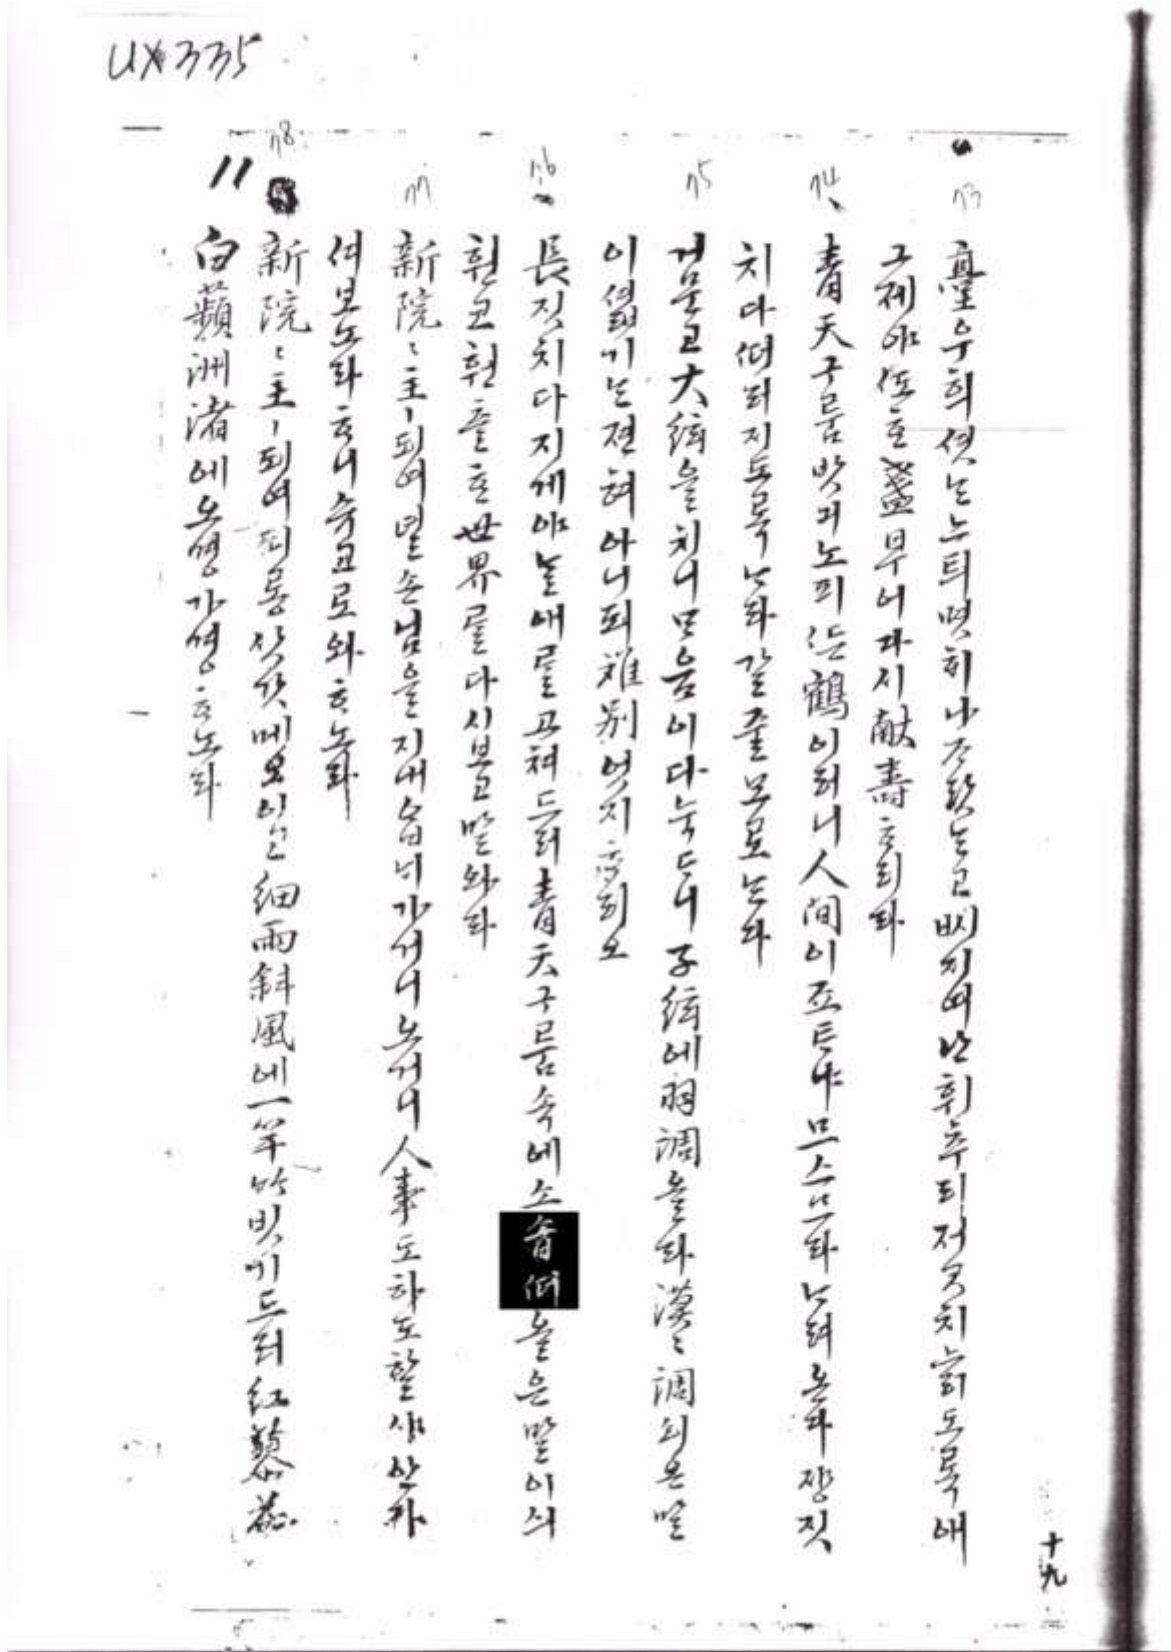 UX335
73
臺우희셧ᄂᆞᆫ느틔몃ᄒᆡ나ᄌᆞ랏ᄂᆞᆫ고ᄡᅵ지여난휘추리저ᄀᆞ치늙도록애
그제야ᄯᅩᄒᆞᆫ盞부어다시獻壽ᄒᆞ리라
74
靑天구룸밧긔노피ᄯᅳᆫ鶴이러니人間이죠ᄐᆞ냐므스므라ᄂᆞ려온다쟝짓
치다ᄯᅥ러지도록ᄂᆞ라갈줄모로ᄂᆞᆫ다
75
거문고大絃을치니ᄆᆞ음이다눅더니子絃에羽調올라漠〻調쇠온말
이셟기ᄂᆞᆫ젼혀아니되離别엇지ᄒᆞ리오
76
長짓치다지게야ᄂᆞᆯ애ᄅᆞᆯ고쳐드러靑天구룸속에소솝ᄯᅥ올은말이싀
훤코훤츨ᄒᆞᆫ世界ᄅᆞᆯ다시보고말와라
77
新院〻主ㅣ되여녈손님을지내옵ᄂᆡ가거니오거니人事도하도할샤안자
셔보노라ᄒᆞ니슈고로와ᄒᆞ노라
78
新院〻主ㅣ되여되롱삿갓메오이고細雨斜風에一竿竹빗기드러紅蓼花
白蘋洲渚에오명가명ᄒᆞ노라
十九